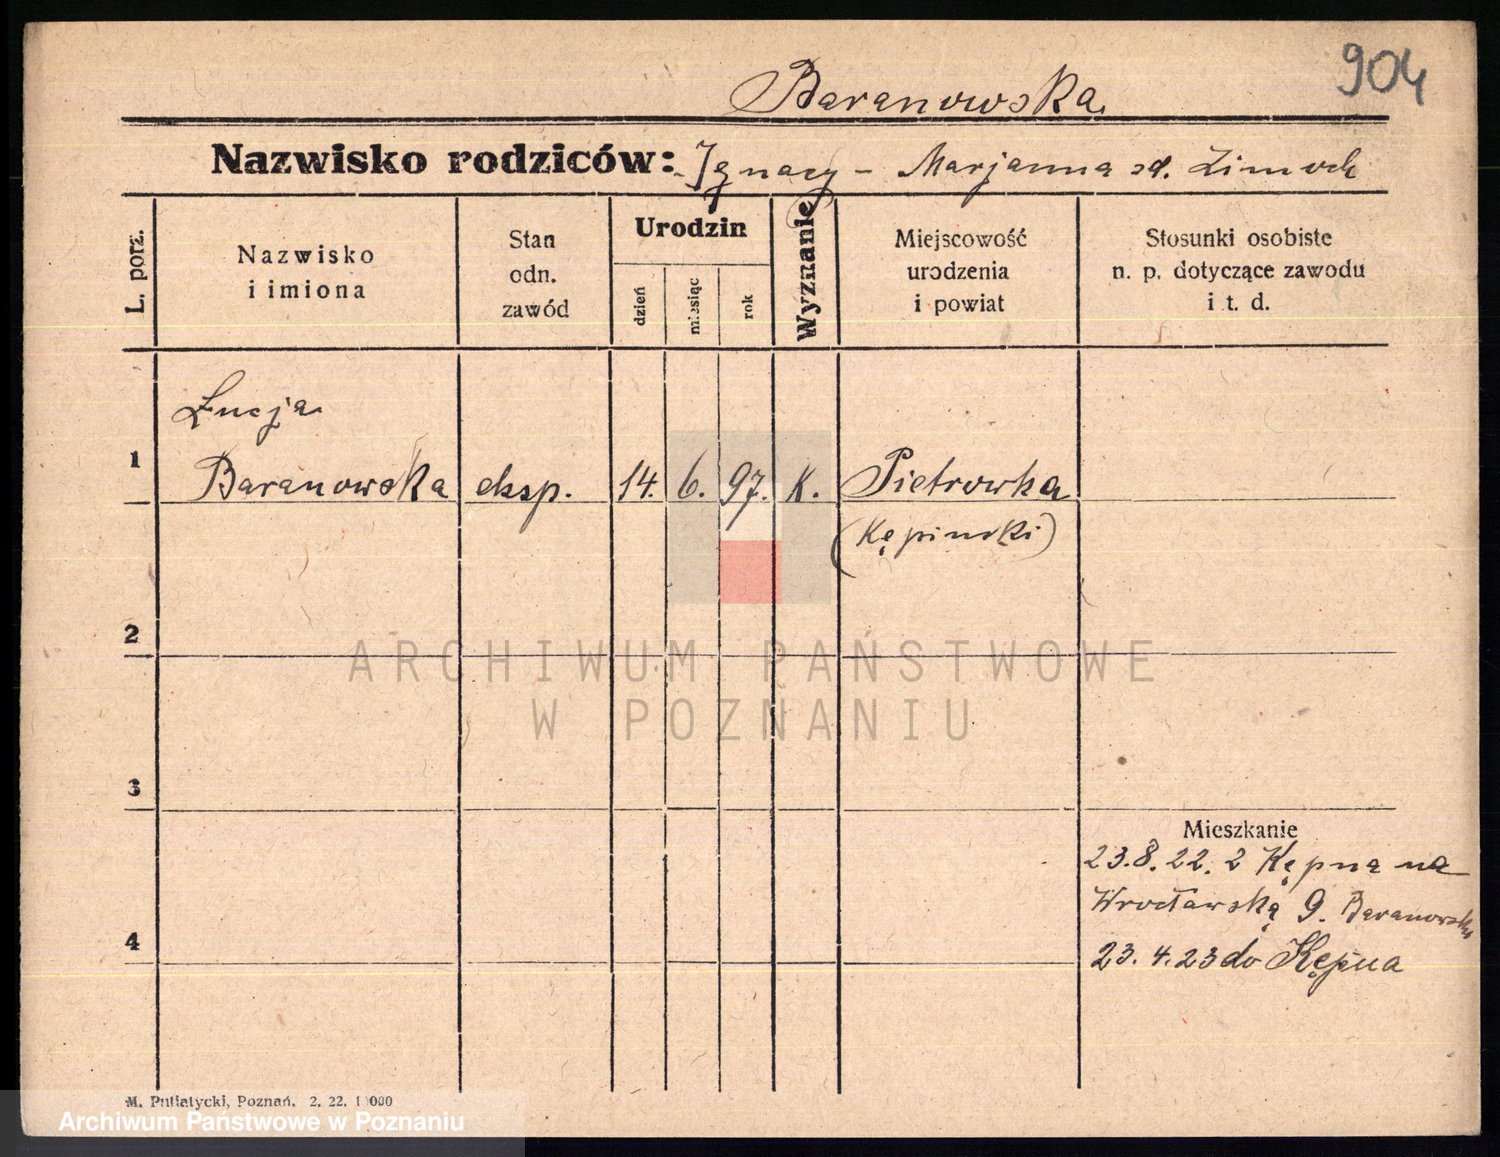 904
Baranowska
Nazwisko rodziców: Ignacy - Marjanna
L. porz.
Nazwisko i imiona
Stan odn. zawód
Urodzin
dzień
miesiąc
rok
Wyznanie
Miejscowość urodzenia i powiat
Stosunki osobiste n. p. dotyczące zawodu i t. d.
Łucja
1 Baranowska eksp. 14. 6. 97. K. Pietrowka
(Kępinski)
2
ARCHIWUM PAŃSTWOWE
W POZNANIU
3
Mieszkanie
23.8.22. z Kępna na
Wrocławską 9. Baranowska
4
23.4.23 do Kępna
M. Putiatycki, Poznań. 2. 22.
Archiwum Państwowe w Poznaniu